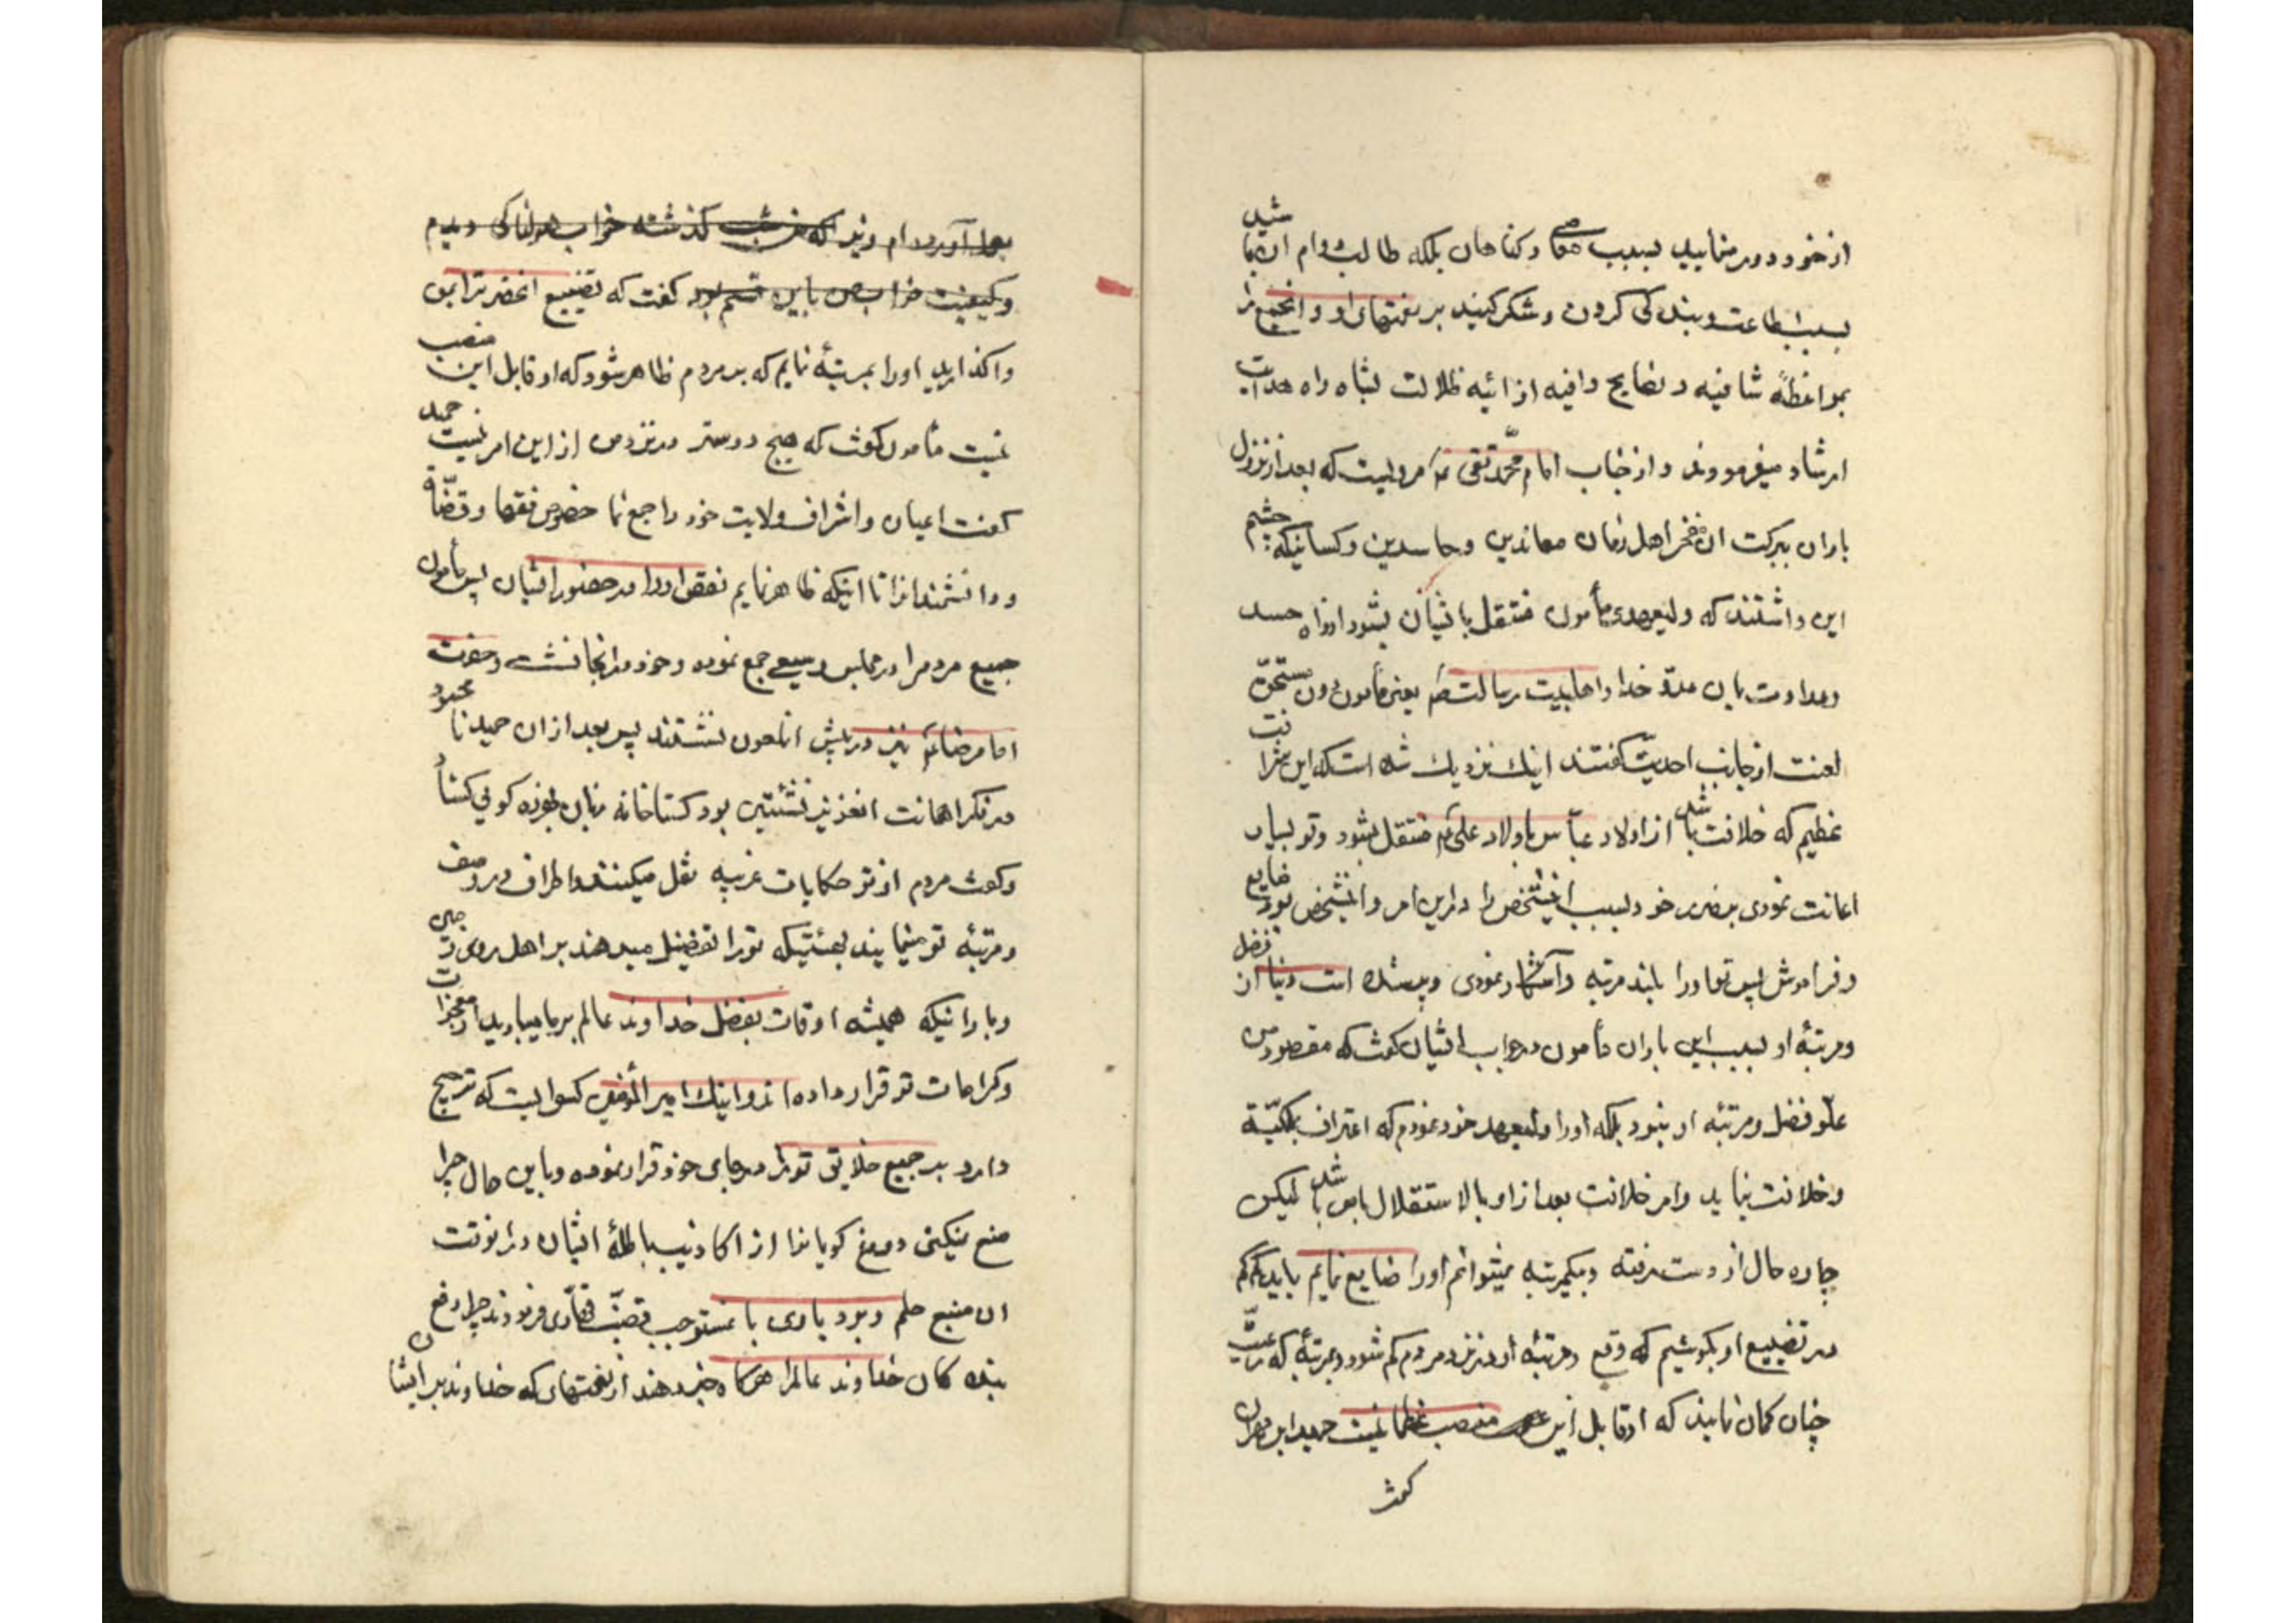 از خود دور منمایید بسبب معاصی و کناهان بلکه طالب دوام ان باشید
بسبب اطاعت و بندکی کردن و شکر کنید بر نعمتهای او و انجمع را
بمواعظهٔ شافیه و نصایح وافیه از ائیه ظلالت بشاه راه هدایت
ارشاد میفرمووند و از جناب امام محمّد تقی ع مرویست که بعد از نزول
باران ببرکت ان فخر اهل زمان معاندین و حاسدین و کسانیکه چشم
این داشتند که ولیعهدی مأمون منتقل باشیان بشود از راه حسد
وعداوت بان عدوّ خدا و اهلبیت رسالت ص یعنی مأمون دون مستحقّ
لعنت از جانب احدیّت کفتند اینک نزدیک شده است که این
عظیم که خلافت باشد از اولاد عبّاس باولاد علی ع منتقل بشود و تو بسیار
اعانت نمودی بضرر خود بسبب اینشخص را دراین امر و اینشخص بود ضایع
و فراموش پس تو اورا بلند مرتبه و آشکار نمودی و پرشده است دنیا از فضل
و مرتبهٔ او بسبب این باران مأمون در جواب ایشان کفت که مقصود من
علّو فضل و مرتبه او نبود بلکه اورا ولیعهد خود نمودم که اعتراف بملکیّة
و خلافت نماید و امر خلافت بعد از او بالاستقلال بامن باشد لیکن
چاره حال از دست رفته و بیکمرتبه نمیتوانم اورا ضایع نمایم باید کم کم
در تضییع او بکوشیم که وقع و مرتبهٔ او در نزد مردم کم شود و بمرتبهٔ که رعیّت
چنان کمان نمایند که او قابل این منصب عظما نیست حمید ابن مهران
کفت
بعمل آورده‌ام و نیز که شب کذشته خواب هولناکی دیدم
و کیفیت خواب من باین قسم بود کفت که تضییع انحضرت را بمن
واکذارید اورا بمرتبهٔ نمایم که بر مردم ظاهر شود که او قابل این منصب
نیست مأمون کفت که هیچ دوستر در نزد من از این امر نیست حمید
کفت اعیان و اشراف ولایت خود را جمع نما خصوص فقها و قضّاة
و دانشمندانرا تا اینکه ظاهر نمایم نقص اورا در حضور ایشان پس مأمون
جمیع مردم را در مجلس وسیعی جمع نموده و خود در انجا نشست و حضرت
امام رضا ع نیز در پیش انملعون نشستند پس بعد از ان حمید نا محمود
در فکر اهانت انعزیز نشئتین بود کستاخانه زبان بهرزه کوئی کشاد
و کفت مردم از تو حکایات غریبه نقل میکنند و اطراف در وصف
و مرتبهٔ تو مینمایند بهیئتیکه تورا تفضیل میدهند بر اهل روی زمین
و بارانیکه همیشه اوقات بفضل خداوند عالم بر ما میبارید از معجزات
و کرامات تو قرار داده‌اند و اینک امیر المؤمنین کسوایست که ترجیح
دارد بر جمیع خلایق تورا در جای خود قرار نموده و باین حال چرا
منع نمیکنی دروغ کویانرا از اکاذیب باطلهٔ ایشان در انوقت
ان منبع حلم و بردباری با مستوجب قهّاری فرمودند چرا دفع
بنده کان خداوند عالمرا هرکاه خبر دهند از نعمتهای که خداوند بر ایشان